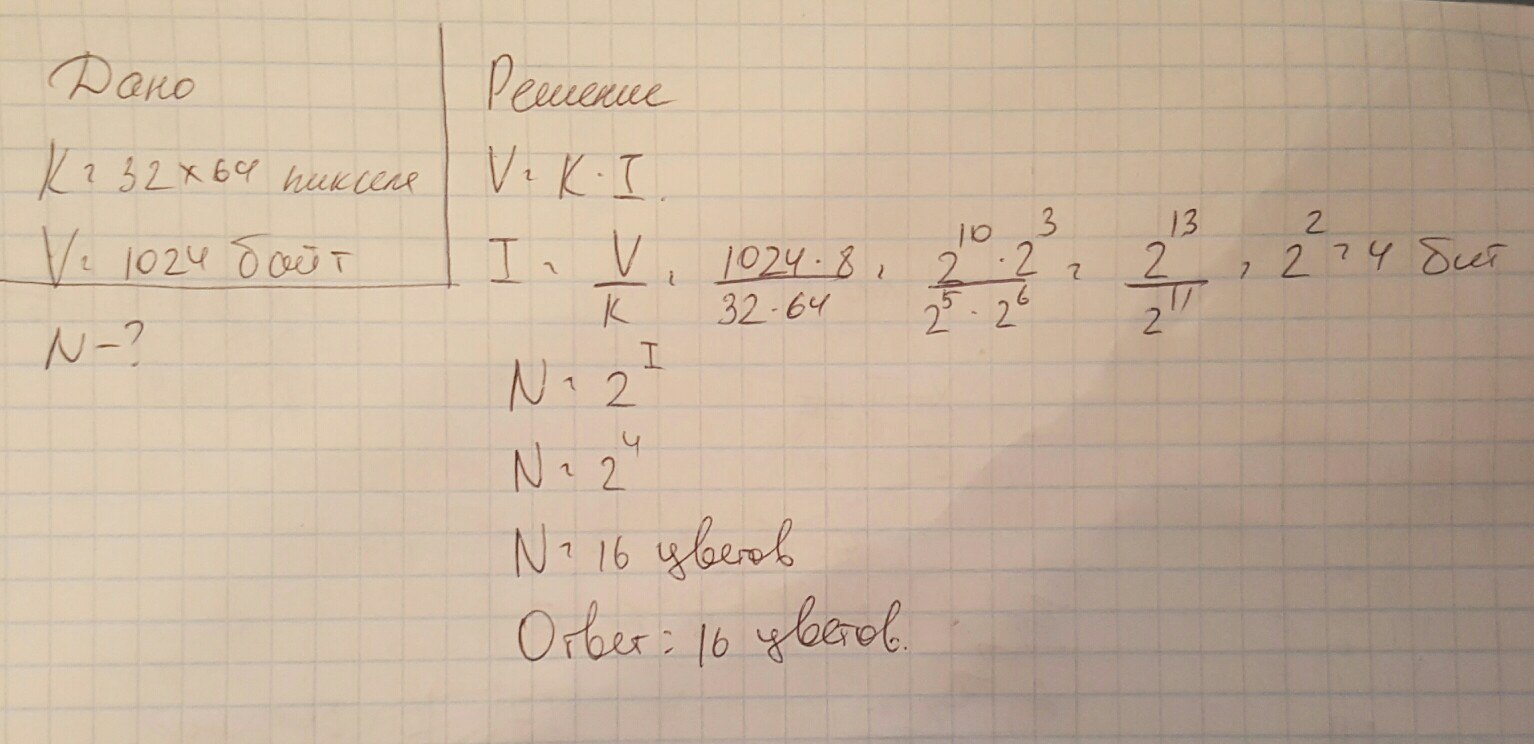 Дано
K = 32 × 64 пикселя
V = 1024 байт
N - ?
Решение
V = K · I.
I = V/K = 1024 · 8 / 32 · 64 = 2^10 · 2^3 / 2^5 · 2^6 = 2^13 / 2^11 = 2^2 = 4 бит
N = 2^I
N = 2^4
N = 16 цветов
Ответ: 16 цветов.